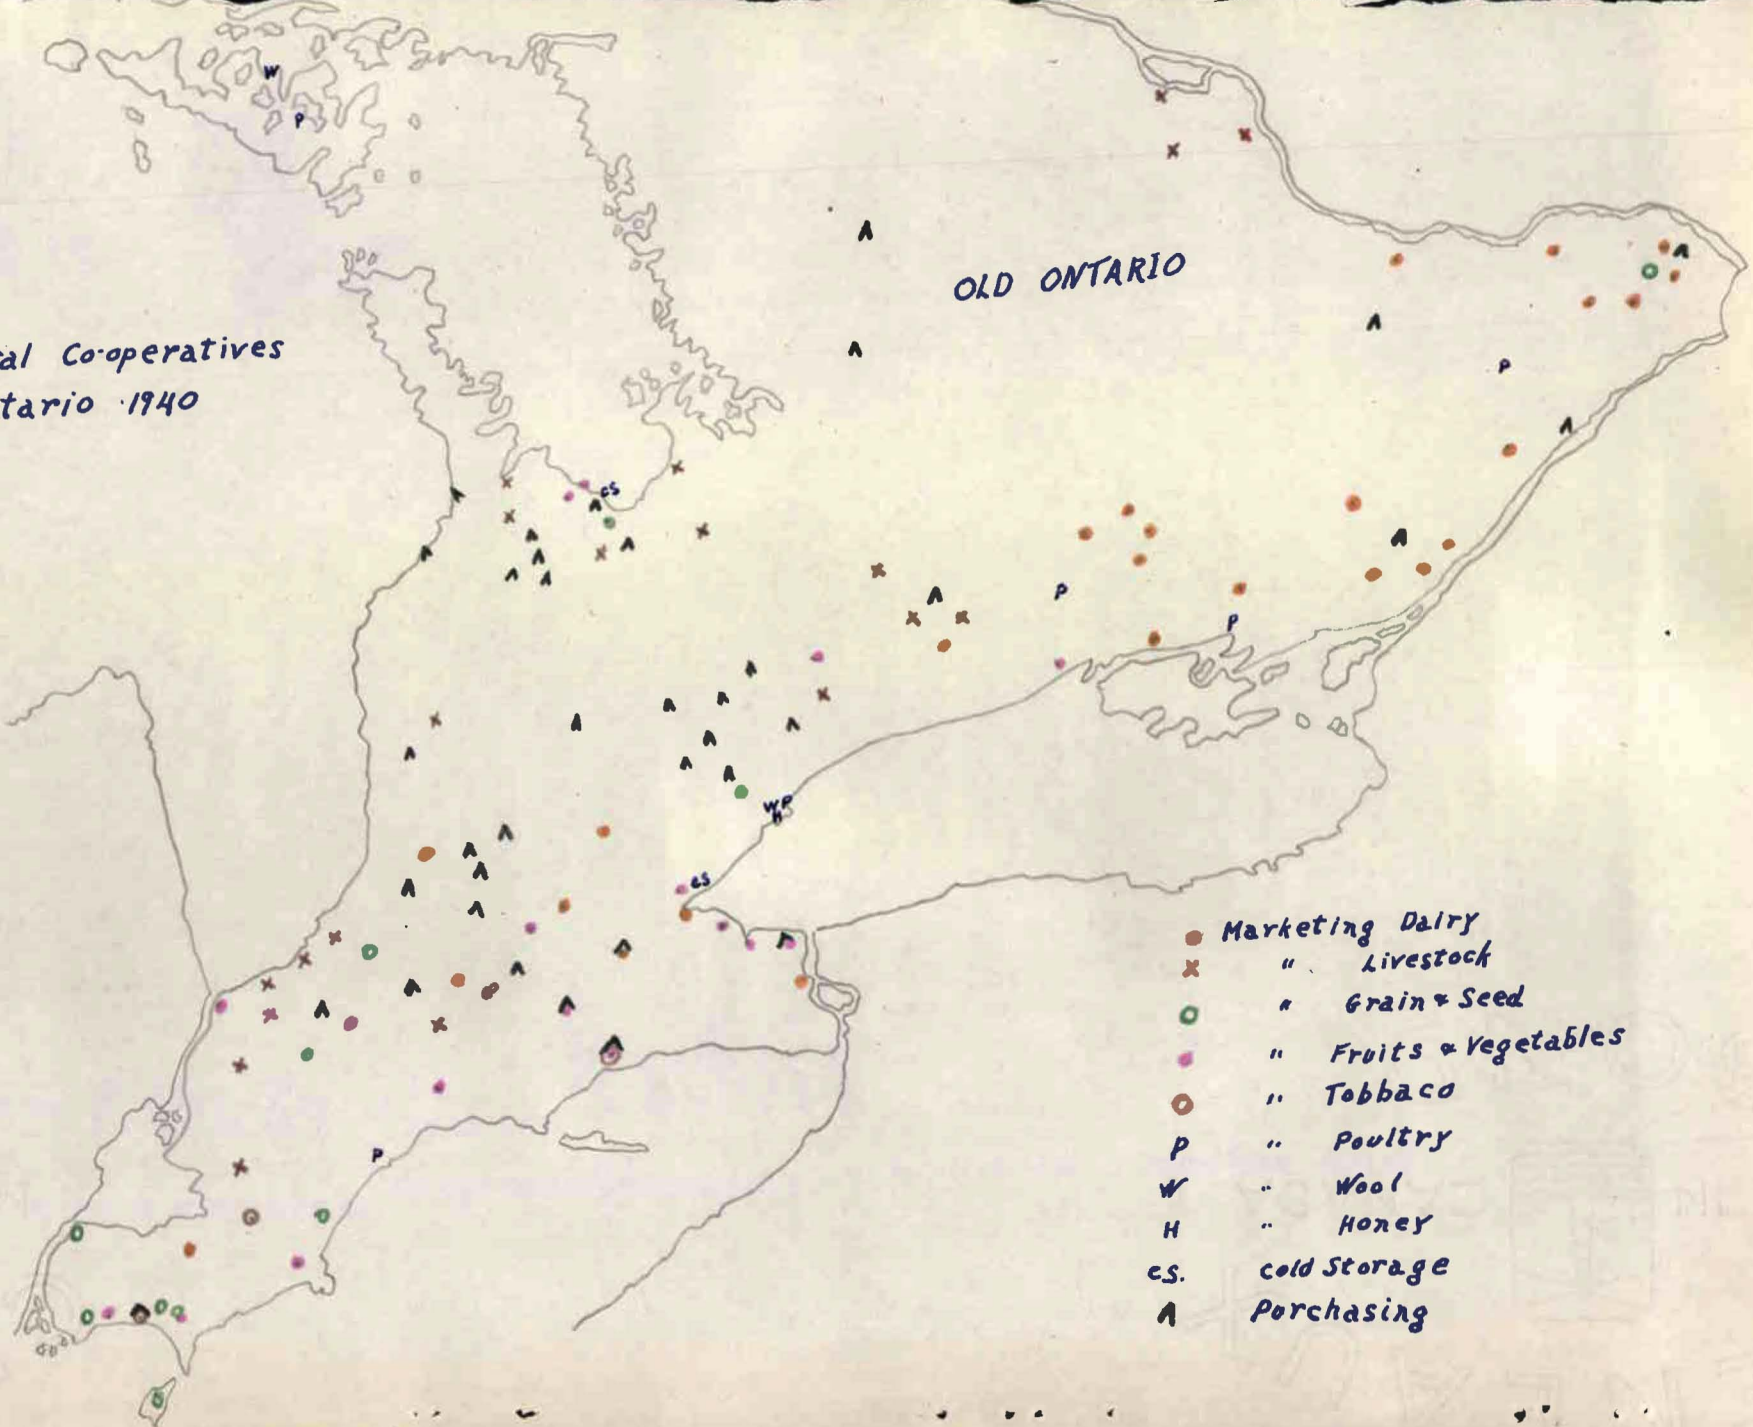 W
P
OLD ONTARIO
al Co-operatives
tario 1940
P
cs
P
P
W P
H
cs
P
Marketing Dairy
" Livestock
" Grain & Seed
" Fruits & Vegetables
" Tobbaco
P " Poultry
W " Wool
H " Honey
cs. cold Storage
Λ Purchasing